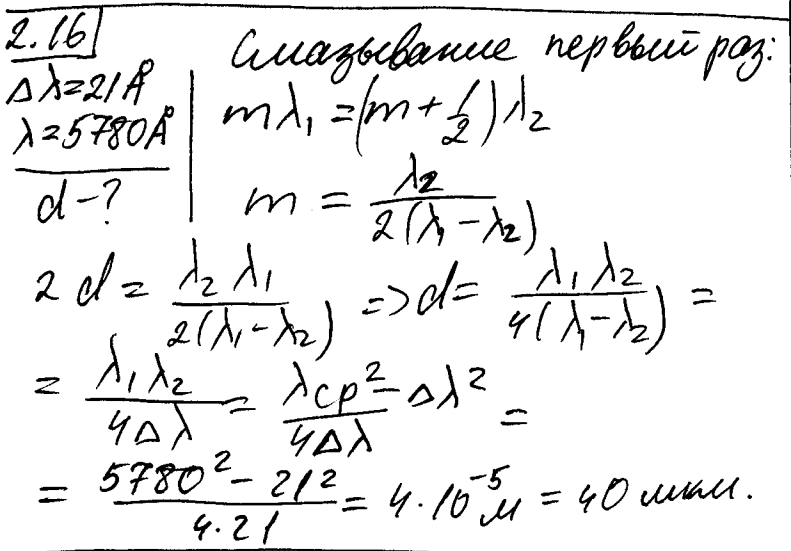 2.16
Δλ=21Å
λ=5780Å
d-?
Смазывание первый раз:
mλ₁=(m+1/2)λ₂
m = λ₂/2(λ₁-λ₂)
2d = λ₂λ₁/2(λ₁-λ₂) => d = λ₁λ₂/4(λ₁-λ₂) =
= λ₁λ₂/4Δλ = λср²-Δλ²/4Δλ =
= 5780²-21²/4·21 = 4·10⁻⁵м = 40 мкм.